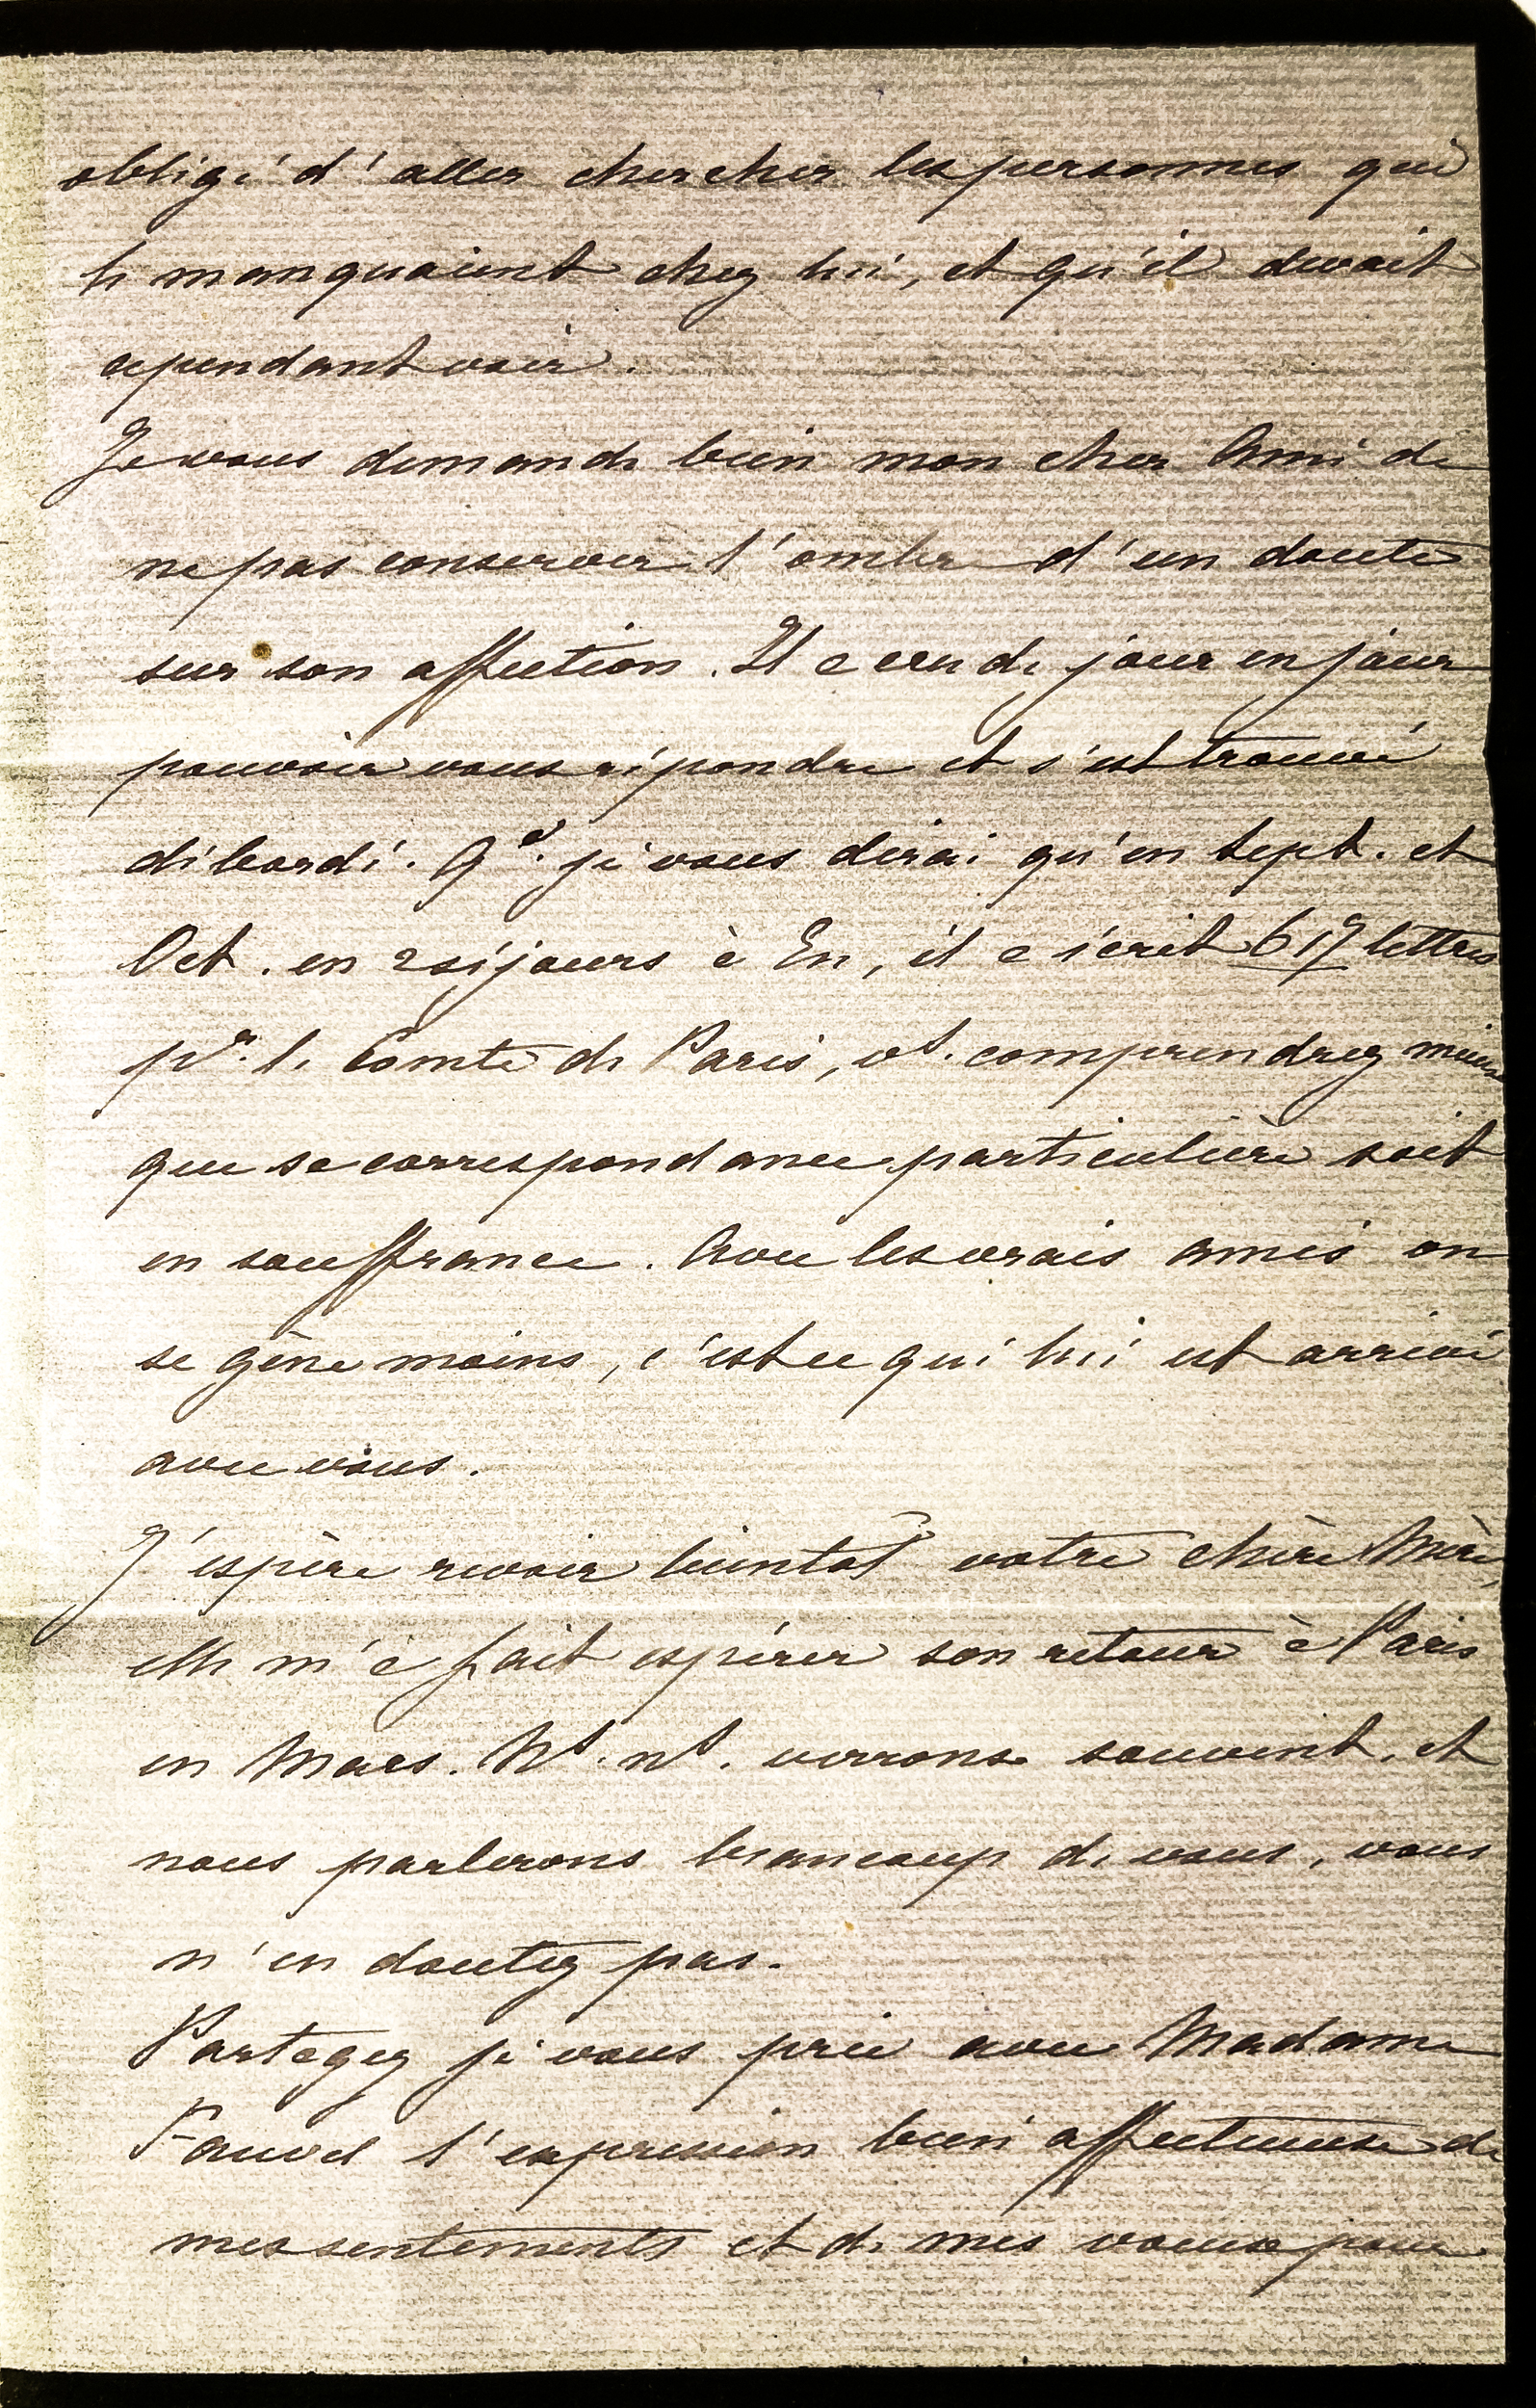 obligé d'aller chercher les personnes qui
le manquaient chez lui, et qu'il devait
cependant voir.
Je vous demande bien mon cher Ami de
ne pas conserver l'ombre d'un doute
sur son affection. Il a cru de jour en jour
pouvoir vous répondre et s'est trouvé
débordé. Qd. je vous dirai qu'en Sept. et
Oct. en 2 séjours à Eu, il a écrit 617 lettres
pr. le Comte de Paris, vs. comprendrez mieux
que sa correspondance particulière soit
en souffrance. Avec les vrais amis on
se gêne moins, c'est ce qui lui est arrivé
avec vous.
J'espère revoir bientôt votre chère Mère,
elle m'a fait espérer son retour à Paris
en Mars. Ns. ns. verrons souvent, et
nous parlerons beaucoup de vous, vous
n'en doutez pas.
Partagez je vous prie avec Madame
Fauvel l'expression bien affectueuse de
mes sentiments et de mes voeux pour